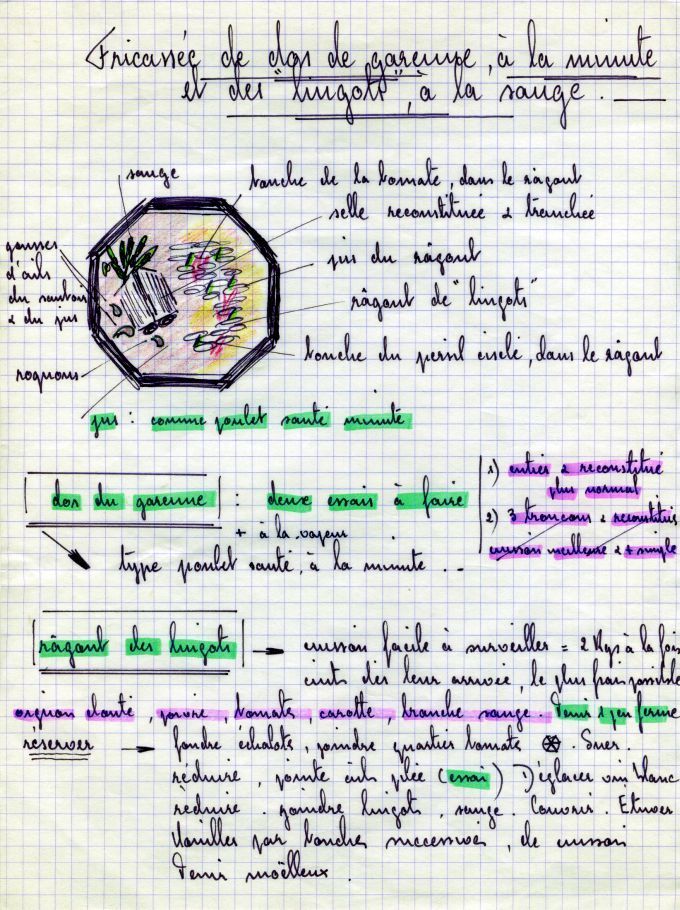 Fricassée de dos de garenne, à la minute
et des "lingots", à la sauge.
sauge
touche de la tomate, dans le râgout
selle reconstituée & tranchée
gousses
d'ails
du sautoir
& du jus
jus du râgout
râgout de "lingots"
touche du persil ciselé, dans le râgout
rognons
jus : comme poulet sauté minute
dos du garenne : deux essais à faire
1) entier & reconstitué
plus normal
2) 3 troncons & reconstitués
cuisson meilleure & + simple
+ à la vapeur
type poulet sauté, à la minute . -
râgout des lingots → cuisson facile à surveiller = 2 Kgs à la fois
cuits dès leur arrivée, le plus frais possible
oignon clouté, poivre, tomates, carotte, branche sauge. Tenir 1 peu ferme
réserver → fondre échalote, joindre quartier tomate . Suer.
réduire, pointe (essai) Déglacer vin blanc
réduire. joindre lingots, sauge. Couvrir. Etuver
Mouiller par touches successives, de cuisson
Tenir moëlleux.